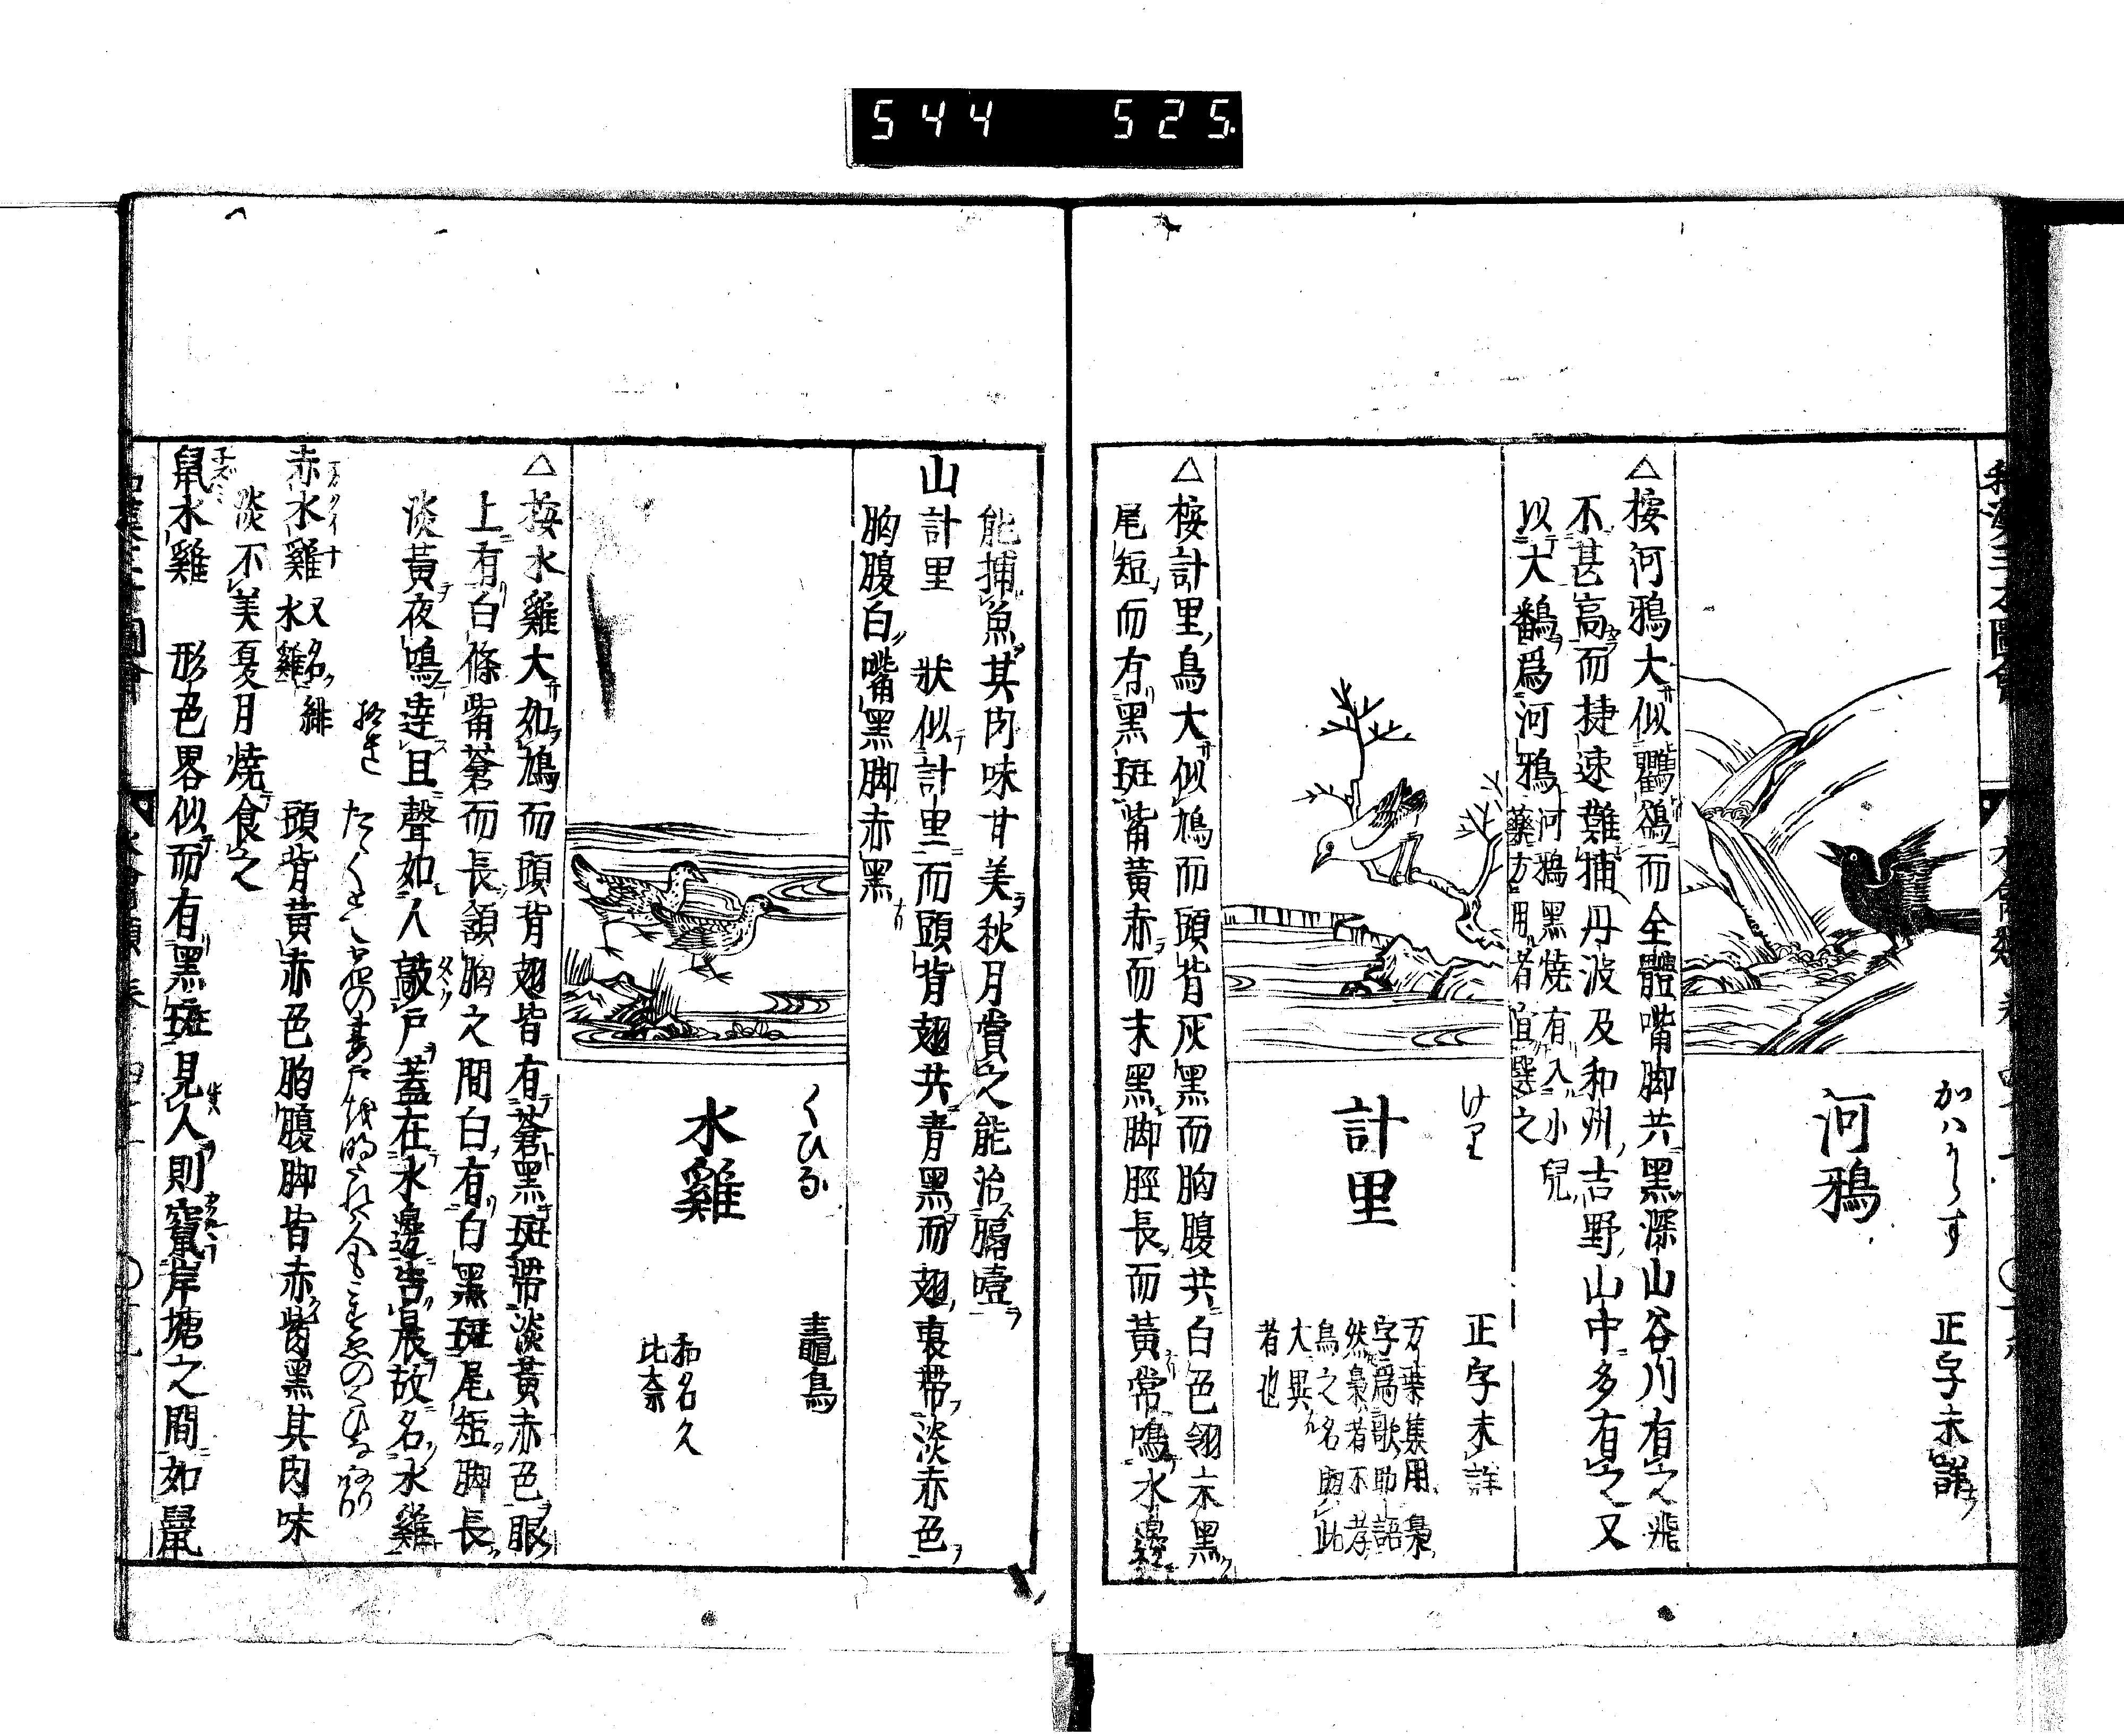 544 525.
河鴉
正字未詳
△桉河鴉大似鸜鵒而全體嘴脚共黑深山谷川有之飛
不甚高而捷速難捕丹波及和州吉野山中多有之又
以大鷭爲河鴉
河鴉黑燒有入小兒
藥方用者宜選之
計里
けり
正字未詳
万葉集用鳧
字爲歌助語
然梟者不孝
鳥之名與此
大異
者也
△桉計里鳥大似鳩而頭背灰黑而胸腹共白色翎末黑
尾短而有黑斑觜黃赤而末黑脚脛長而黃常鳴水邊
能捕魚其肉味甘美秋月賞之能治膈噎
山計里 狀似計里而頭背翅共青黑而翅裏帶淡赤色
胸腹白嘴黑脚赤黑
水雞
くひな
鼃鳥
和名久
比奈
△桉水雞大如鳩而頭背翅皆有蒼黑斑帶淡黃赤色眼
上有白條觜蒼而長頷胸之間白有白黑斑尾短脚長
淡黃夜鳴達且聲如人敲戸蓋在水邊告晨故名水雞
赤水雞 又名緋
水雞
頭背黃赤色胸腹脚皆赤觜黑其肉味
淡不美夏月燒食之
鼠水雞 形色畧似而有黑斑見人則竄岸塘之間如鼠